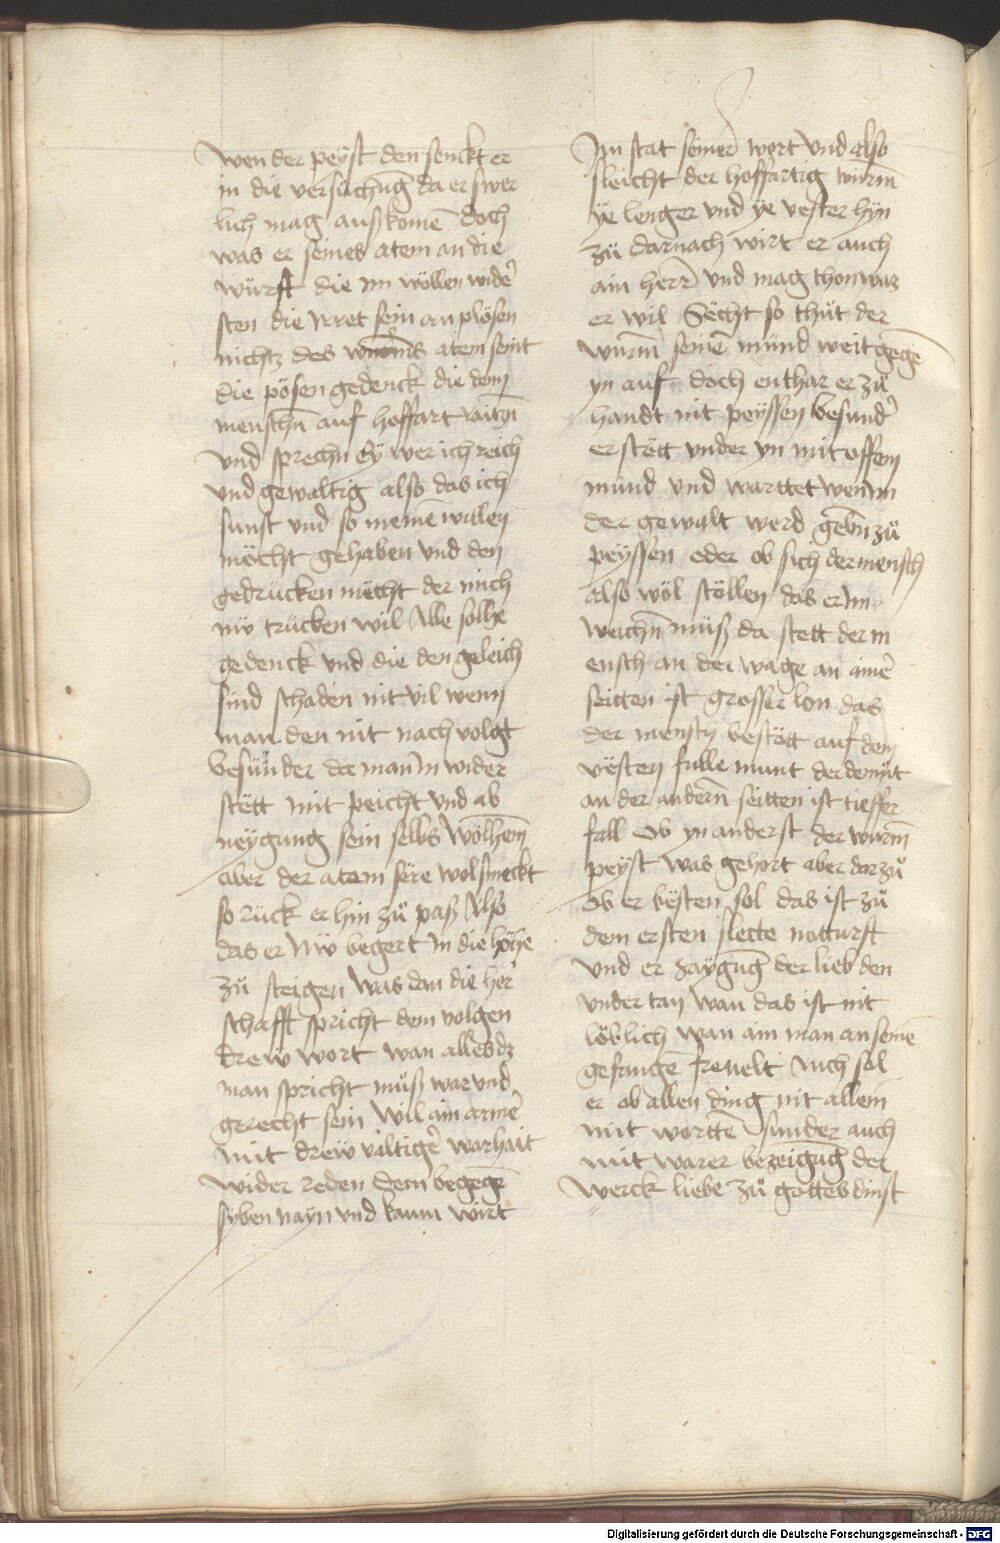 wen der peyst den senckt er
in die versuchūg da er swer
lich mag außkomē doch
was er seines atem an die
würft die im wöllen wider
sten die Irret sein an plösen
nichtz des wurms atem seint
die pösen gedenck die dem
menschn̄ auf hoffart raitzn̄
und sprechn Ey wer ich reich
und gewaltig also das ich
sunst vnd so meine willen
möcht gehaben vnd den
gedrücken möcht der mich
nü trücken wil Alle solhe
gedenck vnd die den geleich
sind schaden nit vil wenn
man den nit nach volgt
besünder da man Im wider
stëtt mit peicht vnd ab
neygung sein selbs Wölhem̄
aber der atem sëre wolsmeckt
so rück er hin zů paß Also
das er Nw begert In die höhe
zů steigen Was dan die her
schafft spricht dem volgen
drew wort wan alles dz
man spricht müß war vnd
gerecht sein Wil ain armer
mit drew valtiger warhait
wider reden dem begegēt
syben nayn vnd kaum wirt
Im stat seiner wort vnd also
sleicht der hoffärtig wurm̄
ÿe lenger vnd ÿe vester hyn
zü darnach wirt er auch
ain herr̄ vnd mag thon waz
er wil Sëcht so thüt der
wurm̄ seinē münd weit gegē
yn auf doch enthar er zů
handt nit peyssen besunder
er stëtt vnder yn mit offem
münd vnd warttet wenn Im
der gewalt werd gebn̄ zů
peyssen oder ob sich der mensch
also wöl stöllen das er Im
weichn̄ müß da stett der m
ensch an der wage an ainer
seitten ist grosser lon das
der mensch bestött auf dem
vësten fulle munt der demüt
an der andern̄ seitten ist tieffer
fall Ob yn anderst der wurm̄
peyst was gehort aber dar zů
Ob er bësten sol das ist zů
dem ersten slecte notturft
vnd er zaygūg der lieb den
vnder tan wan das ist nit
löblich wan ain man an seine
gefangē freuelt Auch sol
er ob allen ding nit allein
mit wortten sunder auch
mit warer bezeigūg der
werck liebe zů gottes dinst
Digitalisierung gefördert durch die Deutsche Forschungsgemeinschaft - DFG